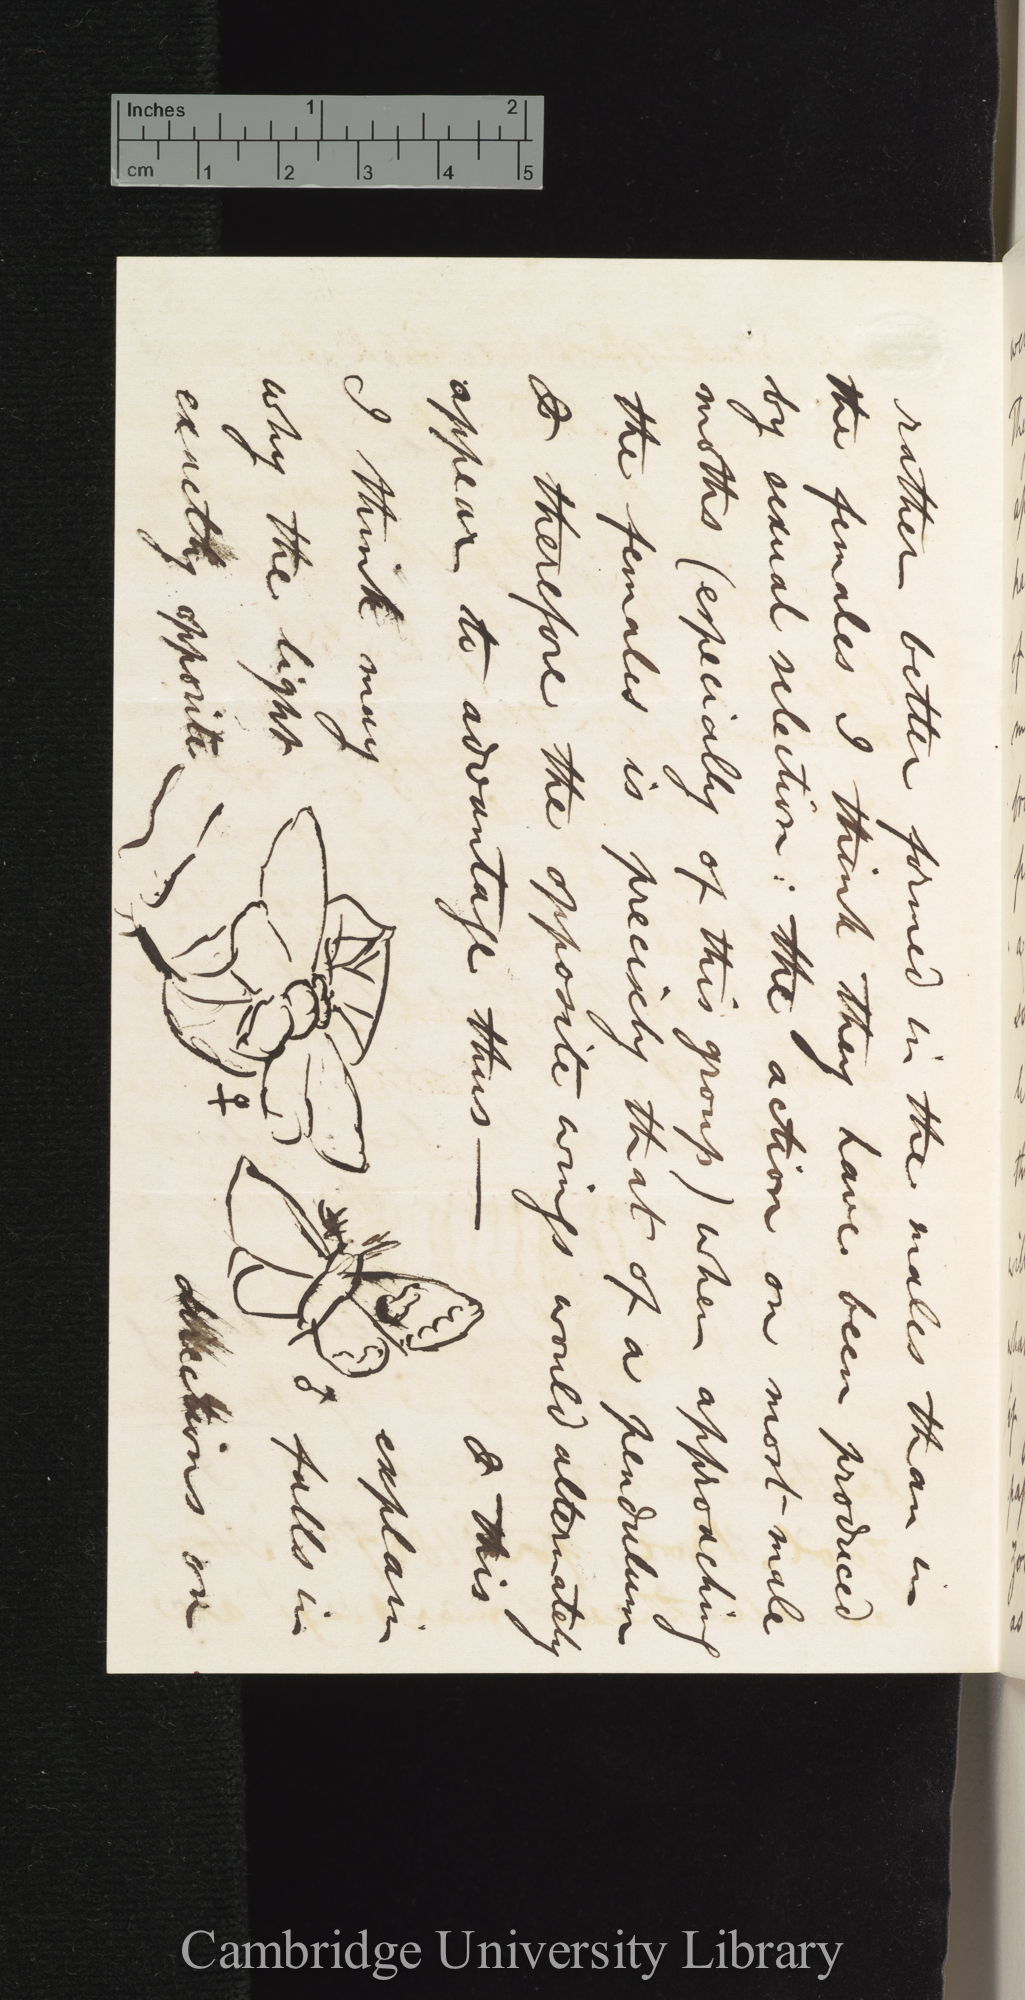 Inches 1 2
cm 1 2 3 4 5
rather better formed in the males than in
the females I think they have been produced
by sexual selection: the action on most male
moths (especially of this group) when approaching
the females is precisely that of a pendulum
& therefore the opposite wings would alternately
appear to advantage thus —
& this
I think may
explain
why the light
falls in
exactly opposite
directions on
♀
♂
Cambridge University Library